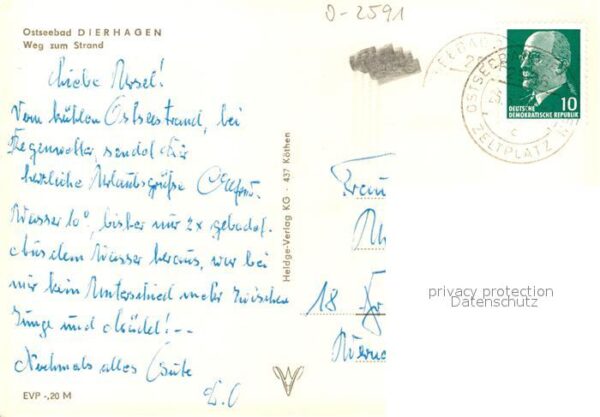 D-2591
Ostseebad DIERHAGEN
Weg zum Strand
Liebe Ursel!
Vom kühlen Ostseestrand, bei
Regenwetter, sendet Dir
herzliche Urlaubsgrüße
Wasser 10°, bisher nur 2x gebadet.
Aus dem Wasser heraus, war bei
mir kein Unterschied mehr zwischen
Junge und Mädel! --
Nochmals alles Gute
D.O
EVP -,20 M
Heldge-Verlag KG · 437 Köthen
DEUTSCHE
DEMOKRATISCHE REPUBLIK
10
OSTSEEBAD
ZELTPLATZ
Frau
18
privacy protection
Datenschutz